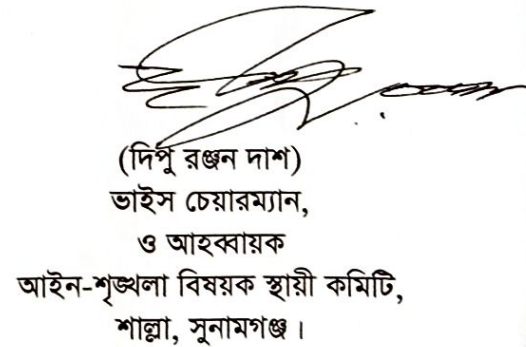 (দিপু রঞ্জন দাশ)
ভাইস চেয়ারম্যান,
ও আহব্বায়ক
আইন-শৃঙ্খলা বিষয়ক স্থায়ী কমিটি,
শাল্লা, সুনামগঞ্জ।